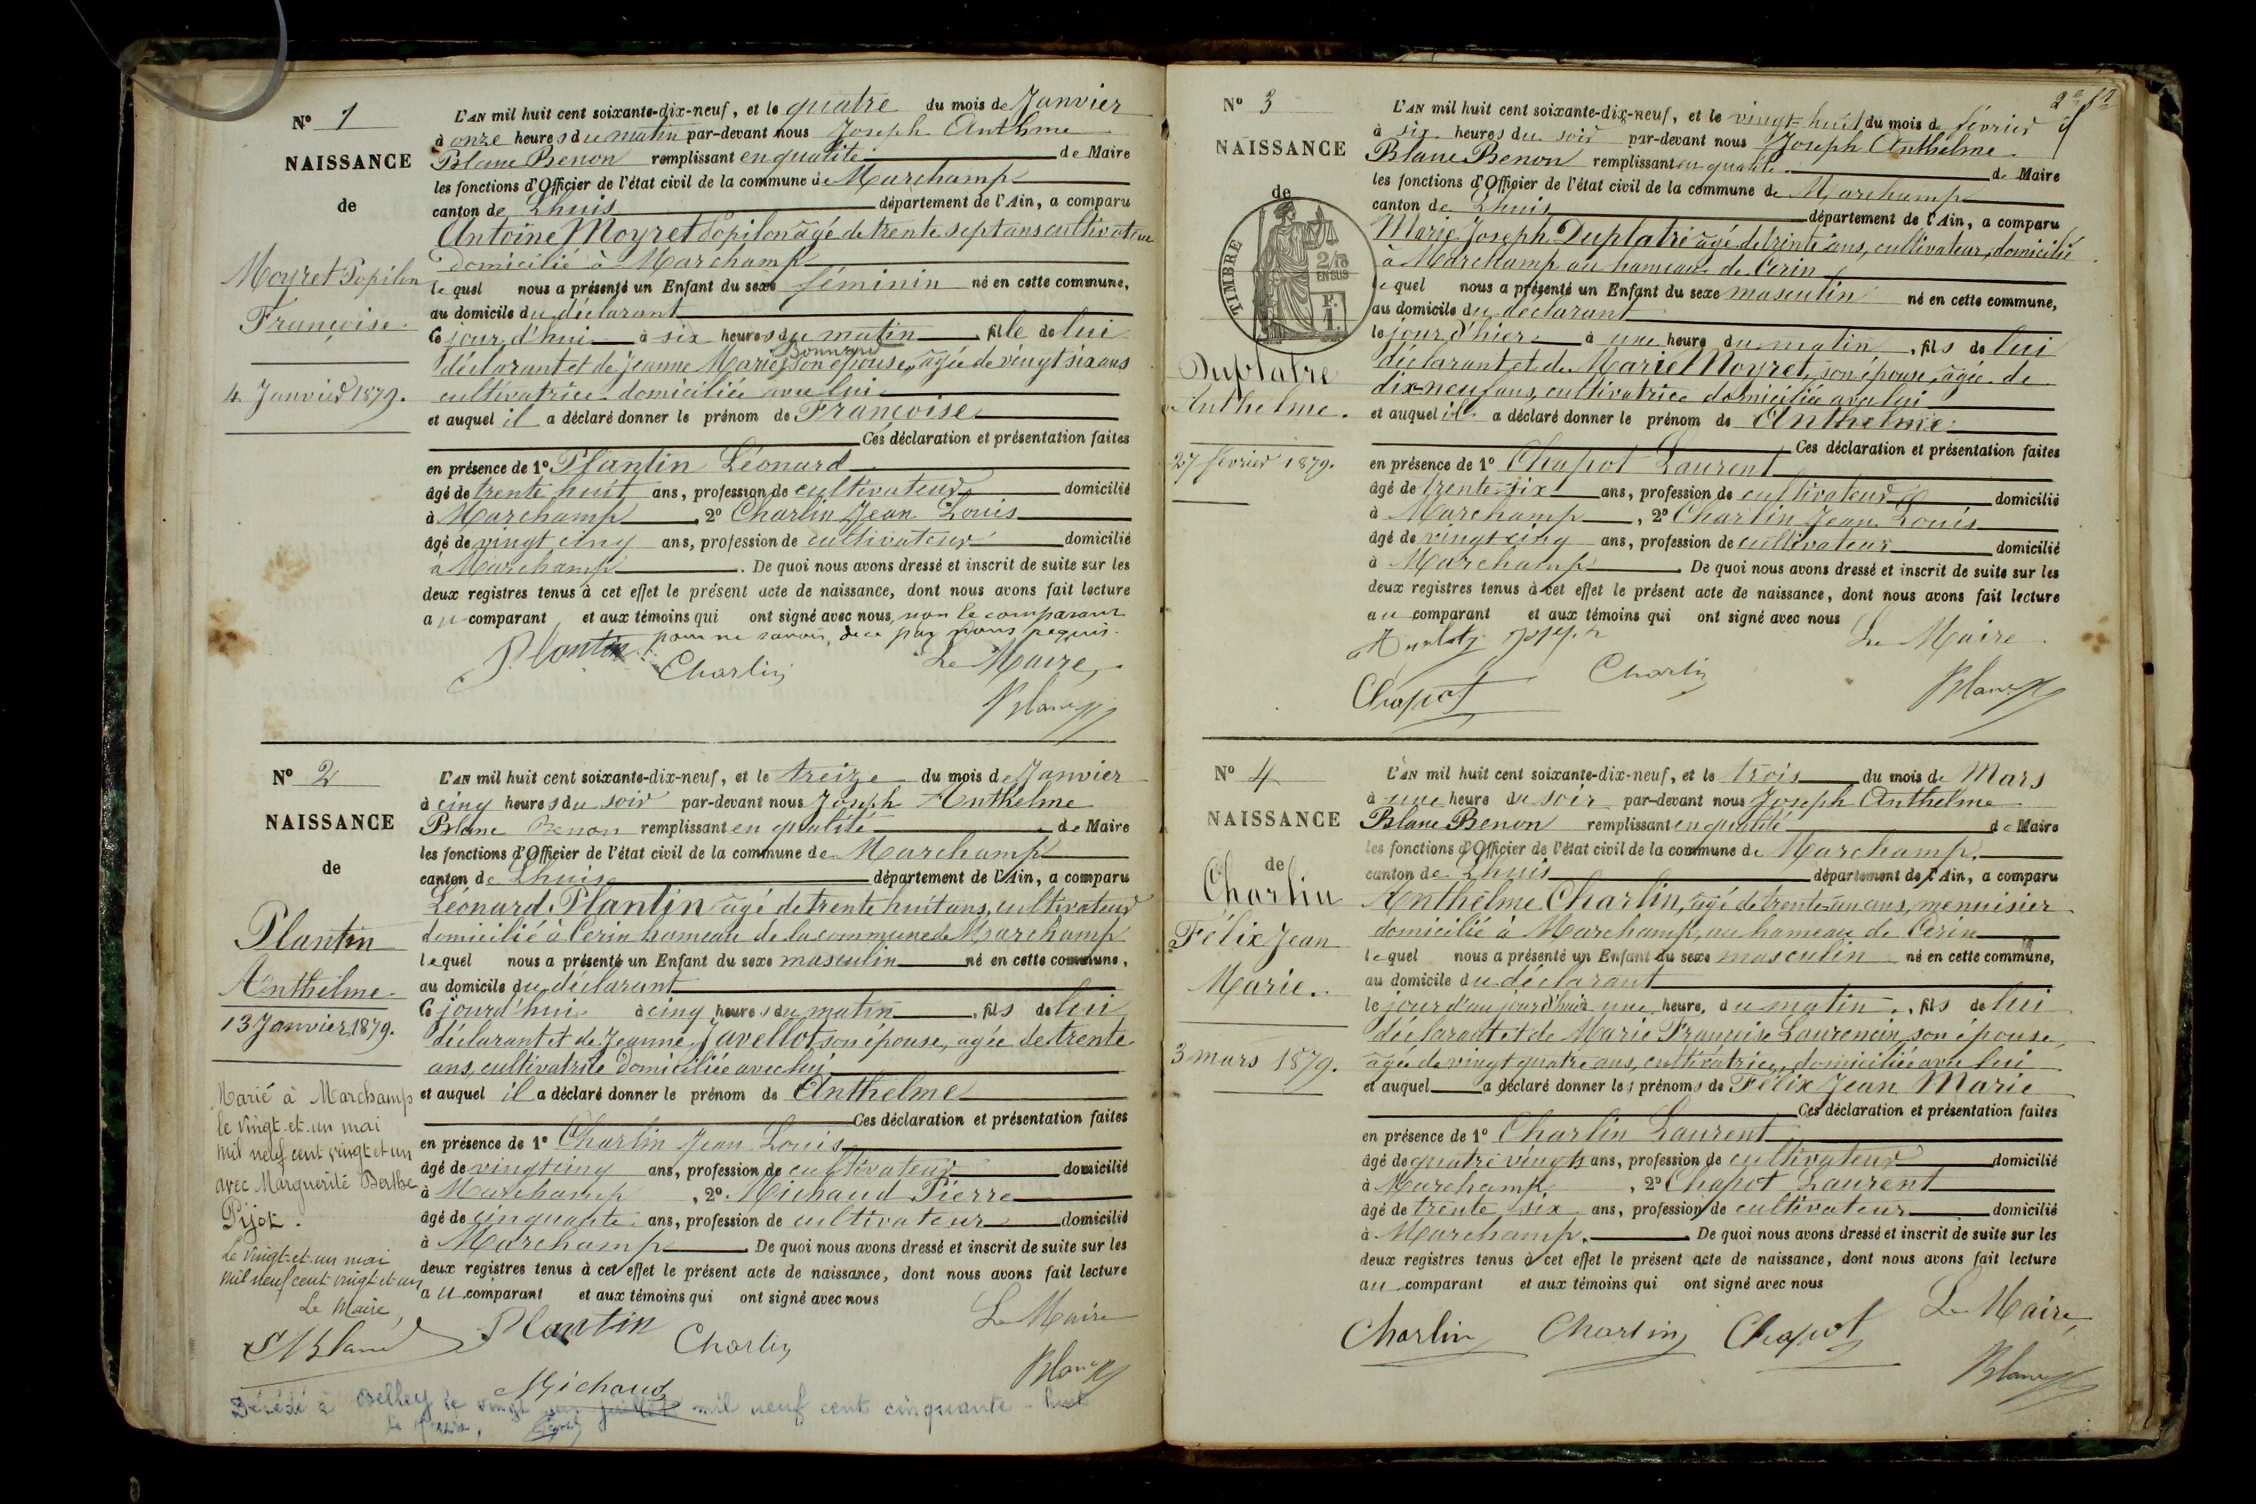 N° 1
NAISSANCE
de
Moyret Popilon
Françoise.
4 Janvier 1879.
L'AN mil huit cent soixante-dix-neuf, et le quatre du mois de Janvier
à onze heures du matin par-devant nous Joseph Anthme
Blanc Benon remplissant en qualité de Maire
les fonctions d'Officier de l'état civil de la commune de Marchamp
canton de Lhuis département de l'Ain, a comparu
Antoine Moyret Popilon âgé de trente sept ans cultivateur
domicilié à Marchamp
lequel nous a présenté un Enfant du sexe féminin né en cette commune,
au domicile du déclarant
Ce jourd'hui à six heures du matin, fille de lui
Bonnard
déclarant et de Jeanne Marie, son épouse, âgée de vingt six ans
cultivatrice domiciliée avec lui
et auquel il a déclaré donner le prénom de Françoise
Ces déclaration et présentation faites
en présence de 1° Plantin Léonard
âgé de trente huit ans, profession de cultivateur domicilié
à Marchamp, 2° Charlin Jean Louis
âgé de vingt cinq ans, profession de cultivateur domicilié
à Marchamp. De quoi nous avons dressé et inscrit de suite sur les
deux registres tenus à cet effet le présent acte de naissance, dont nous avons fait lecture
au comparant et aux témoins qui ont signé avec nous, non le comparant
pour ne savoir, de ce par nous requis.
Plantin Charlin Le Maire,
Blanc
N° 2
NAISSANCE
de
Plantin
Anthelme
13 Janvier 1879.
Marié à Marchamp
le vingt-et-un mai
mil neuf cent vingt et un
avec Marguerite Berthe
Pijot.
Le vingt-et-un mai
mil neuf cent vingt et un
Le Maire,
Blanc
L'AN mil huit cent soixante-dix-neuf, et le treize du mois de Janvier
à cinq heures du soir par-devant nous Joseph Anthelme
Blanc Benon remplissant en qualité de Maire
les fonctions d'Officier de l'état civil de la commune de Marchamp
canton de Lhuis département de l'Ain, a comparu
Léonard Plantin âgé de trente huit ans, cultivateur
domicilié à Cerin hameau de la commune de Marchamp
lequel nous a présenté un Enfant du sexe masculin né en cette commune,
au domicile du déclarant
Ce jourd'hui à cinq heures du matin, fils de lui
déclarant et de Jeanne Javellot, son épouse, agée de trente
ans, cultivatrice domiciliée avec lui
et auquel il a déclaré donner le prénom de Anthelme
Ces déclaration et présentation faites
en présence de 1° Charlin Jean Louis
âgé de vingt cinq ans, profession de cultivateur domicilié
à Marchamp, 2° Michaud Pierre
âgé de cinquante ans, profession de cultivateur domicilié
à Marchamp. De quoi nous avons dressé et inscrit de suite sur les
deux registres tenus à cet effet le présent acte de naissance, dont nous avons fait lecture
au comparant et aux témoins qui ont signé avec nous
Plantin Charlin Le Maire
Michaud Blanc
Décédé à Belley le vingt un juillet mil neuf cent cinquante - huit
Le Maire,
N° 3
NAISSANCE
de
TIMBRE
2/10
EN SUS
F.
1.
Duplatre
Anthelme.
27 février 1879.
L'AN mil huit cent soixante-dix-neuf, et le vingt-huit du mois de février
à six heures du soir par-devant nous Joseph Anthelme
Blanc Benon remplissant en qualité de Maire
les fonctions d'Officier de l'état civil de la commune de Marchamp
canton de Lhuis département de l'Ain, a comparu
Marie Joseph Duplatre âgé de trente ans, cultivateur, domicilié
à Marchamp au hameau de Cerin
lequel nous a présenté un Enfant du sexe masculin né en cette commune,
au domicile du déclarant
le jour d'hier à une heure du matin, fils de lui
déclarant et de Marie Moyret, son épouse, agée de
dix-neuf ans, cultivatrice domiciliée avec lui
et auquel il a déclaré donner le prénom de Anthelme
Ces déclaration et présentation faites
en présence de 1° Chapot Laurent
âgé de trente-six ans, profession de cultivateur domicilié
à Marchamp, 2° Charlin Jean Louis
âgé de vingt cinq ans, profession de cultivateur domicilié
à Marchamp. De quoi nous avons dressé et inscrit de suite sur les
deux registres tenus à cet effet le présent acte de naissance, dont nous avons fait lecture
au comparant et aux témoins qui ont signé avec nous
joseph Le Maire
Chapot Charlin Blanc
N° 4
NAISSANCE
de
Charlin
Félix Jean
Marie.
3 mars 1879.
L'AN mil huit cent soixante-dix-neuf, et le trois du mois de Mars
à une heure du soir par-devant nous Joseph Anthelme
Blanc Benon remplissant en qualité de Maire
les fonctions d'Officier de l'état civil de la commune de Marchamp.
canton de Lhuis département de l'Ain, a comparu
Anthelme Charlin, âgé de trente-un ans, menuisier
domicilié à Marchamp, au hameau de Cerin
lequel nous a présenté un Enfant du sexe masculin né en cette commune,
au domicile du déclarant
le jour d'aujourd'hui à une heure, du matin, fils de lui
déclarant et de Marie Françoise Laurencin, son épouse,
agée de vingt quatre ans, cultivatrice, domiciliée avec lui
et auquel a déclaré donner les prénoms de Félix Jean Marie
Ces déclaration et présentation faites
en présence de 1° Charlin Laurent
âgé de quatre vingts ans, profession de cultivateur domicilié
à Marchamp, 2° Chapot Laurent
âgé de trente six ans, profession de cultivateur domicilié
à Marchamp. De quoi nous avons dressé et inscrit de suite sur les
deux registres tenus à cet effet le présent acte de naissance, dont nous avons fait lecture
au comparant et aux témoins qui ont signé avec nous
Charlin Charlin Chapot Le Maire,
Blanc